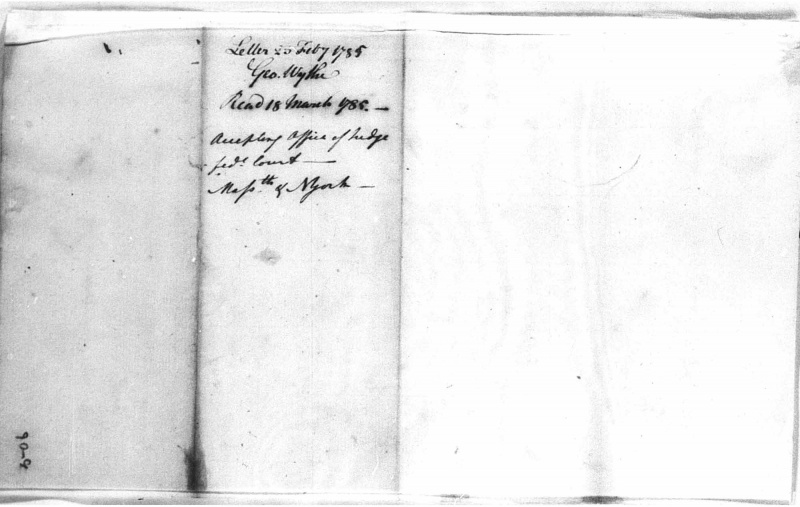 Letter 23 Feby 1785
Geo. Wythe
Read 18 March 1785. —
Accepting Office of Judge
fedl. Court —
Massts. & NYork —